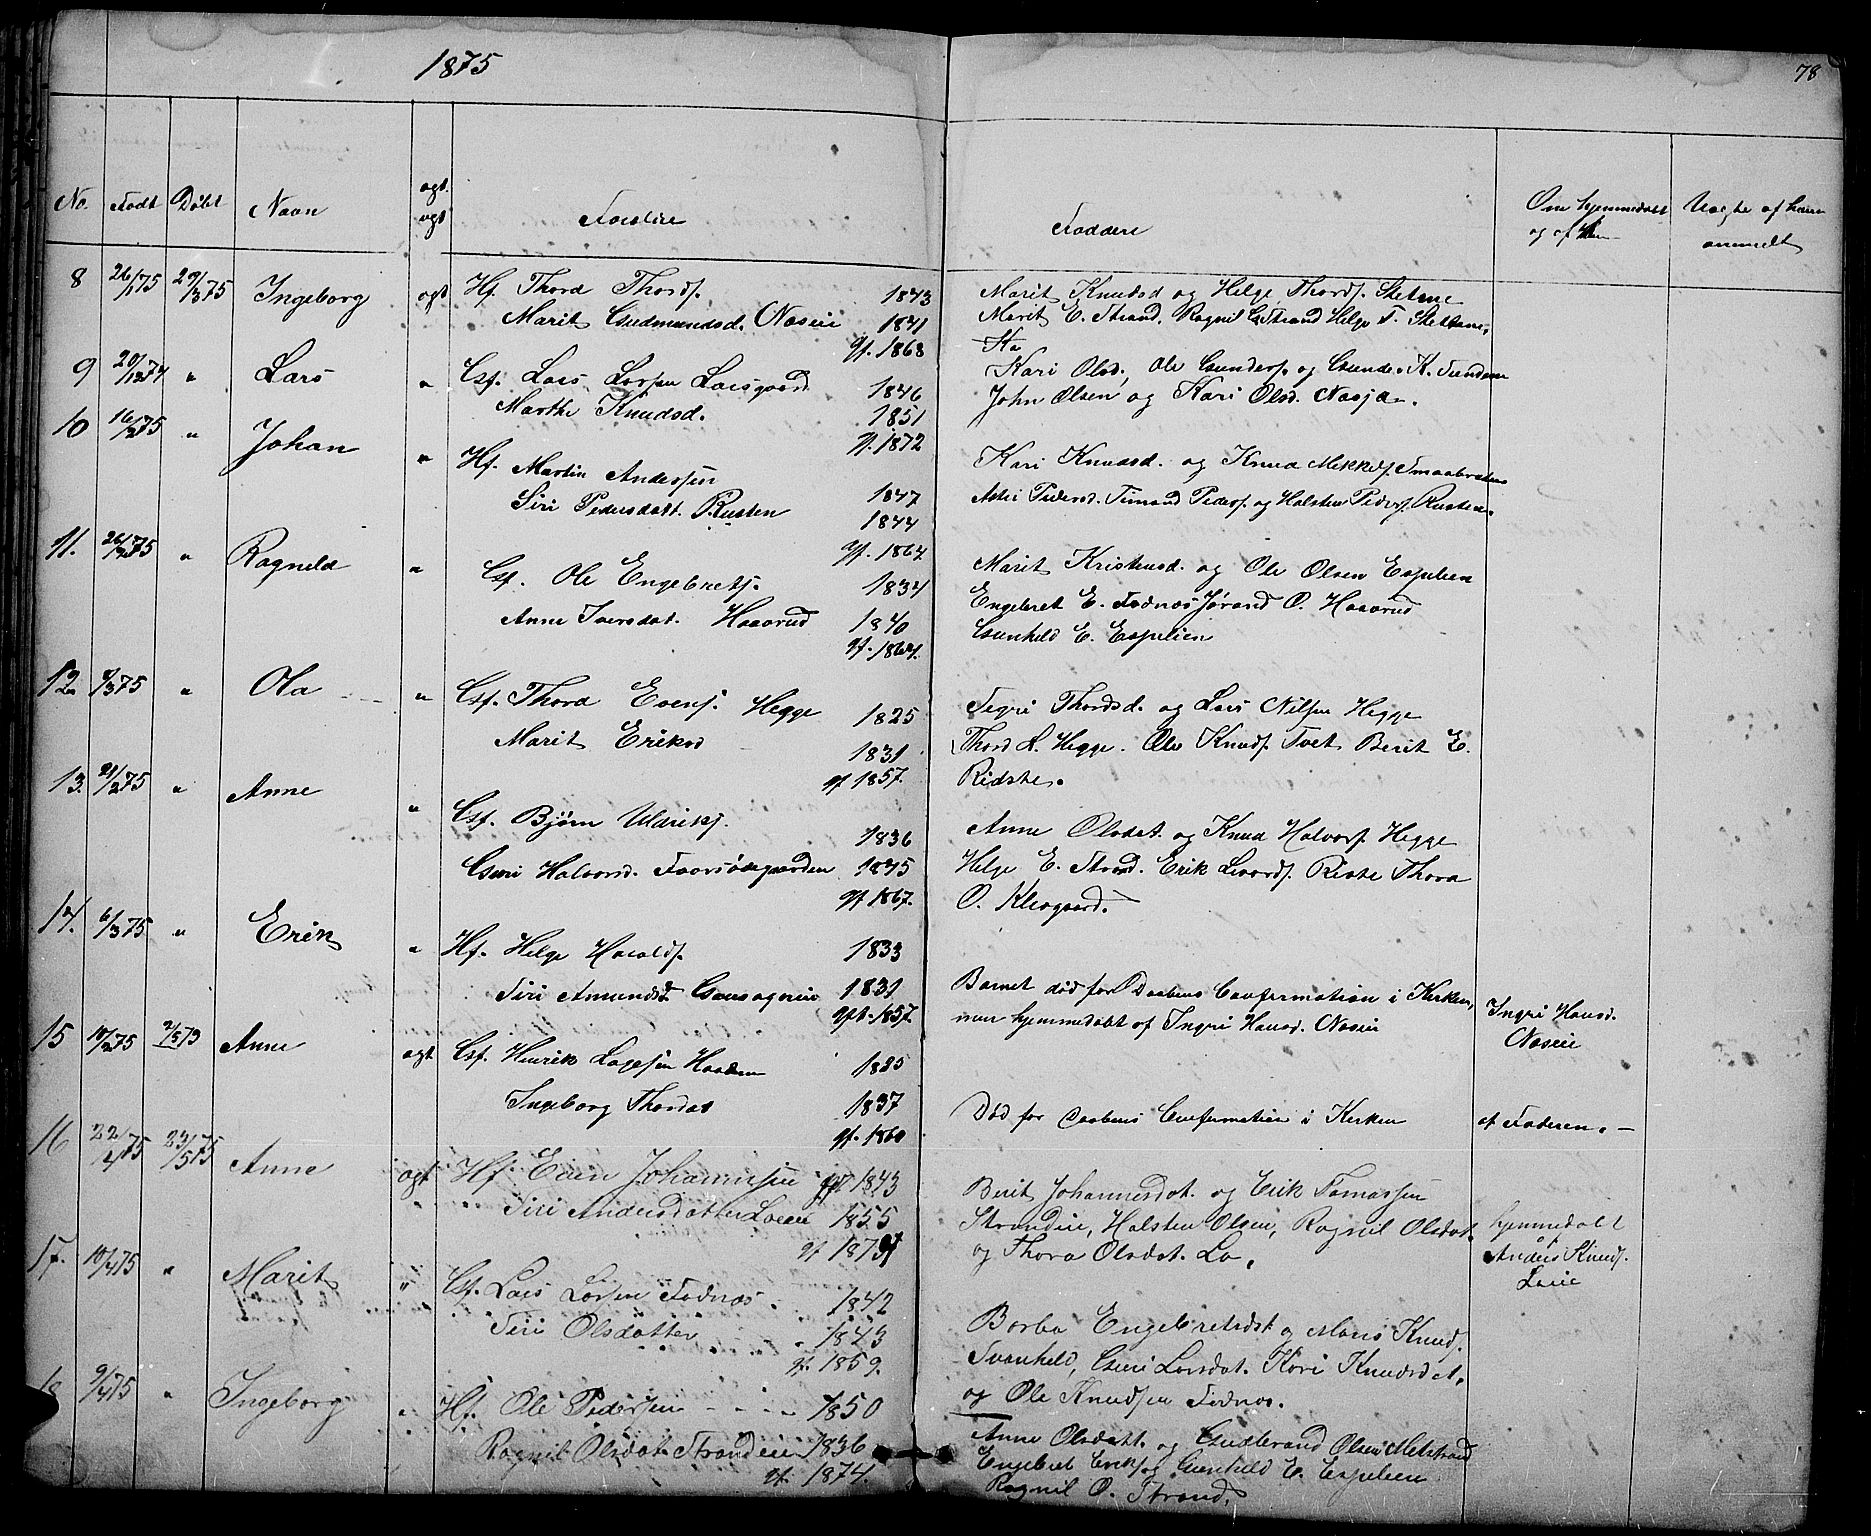 1875
78
No. Født Døbt Navn ogt. uegt Forældre Faddere Om hjemmedøbt og af hvem Uægte af hvem anmeldt
8 26/1 75 29/3 75 Ingeborg ogt Hf. Thord Thords. 1843
Marit Gudmundsd. Nøseie 1841
gf. 1868
Marit Knudsd og Helge Thords. Stetane
Marit E. Strand. Ragnil G. Strand Helge T.
9 20/12 74 " Lars " Gsf. Lars Larsen Larsgaard 1846
Marthe Knudsd. 1851
gf. 1872
Kari Olsd., Ole Gunders. og Gunder K.
John Olsen og Kari Olsd. Nøsja.
10 16/2 75 " Johan " Hf. Martin Andersen 1847
Siri Pedersdatt. Rusten 1844
gf. 1864
Kari Knudsd. og Knud Mikkels. Smaabraaten
Pedersd. Simand Peders. og Halsten Peders. Rusten.
11. 24/2 75 " Ragnild " Gsf. Ole Engebrets. 1834
Anne Iversdat. Haavrud 1840
gf. 1864.
Marit Kristensd. og Ole Olsen Espelien
Engebret E. Fødnæs Jørand O. Haavrud
Gunhild E. Espelien
12 /3 75 " Ola " Gsf. Thord Evens. Hegge 1825
Marit Eriksd 1831
gf 1857.
Segri Thordsd. og Lars Nilsen Hegge
Thord L. Hegge. Ole Knuds. Tvet. Berit E.
Ridste.
13. 21/2 75 " Anne " Gsf. Bjørn Ulriks. 1836
Guri Halvorsd. 1845
gf 1867.
Anne Olsdat. og Knud Halvors. Hegge
Helge E. Strand. Erik Levords. Riste Thora
O. Klevgaard.
14. 6/3 75 " Erik " Hf. Helge Haralds. 1833
Siri Amundsd 1831
gft. 1857.
Barnet død før Daabens Confermation i Kirken,
men hjemmedøbt af Ingri Hansd. Nøseie
Ingri Hansd.
Nøseie
15 10/2 75 2/5 73 Anne ogt Gsf. Henrik Lagesen Haadem 1825
Ingeborg Thordsd 1837
gf. 1860
Død før Daabens Confermation i Kirken
af Faderen. —
16 22/4 75 23/5 75 Anne ogt Hf. Even Johannesen 1843
Siri Andersdatter Loeie 1855
gf 1874
Berit Johannesdat. og Erik Tomassen
Strandeie, Halsten Olsen, Ragnil Olsdat.
og Thora Olsdat. Lo,
hjemmedøbt
af
Anders Knuds.
Loeie
17. 10/4 75 " Marit " Gsf. Lars Larsen Fødnæs. 1842
Siri Olsdatter 1843
gf. 1869.
Barbo Engebretsdat og Knud.
Svanhild, Guri Larsdat. Kari Knudsdat,
og Ole Knudsen Fødnæs.
18 9/4 75 " Ingeborg " Hf. Ole Pedersen 1850
Ragnil Olsdat. Strandeie 1836
gf. 1874.
Anne Olsdatt. og Gudbrand Olsen
Engebret Eriks og Gunhild E. Espelien
Ragnil O. Strand.